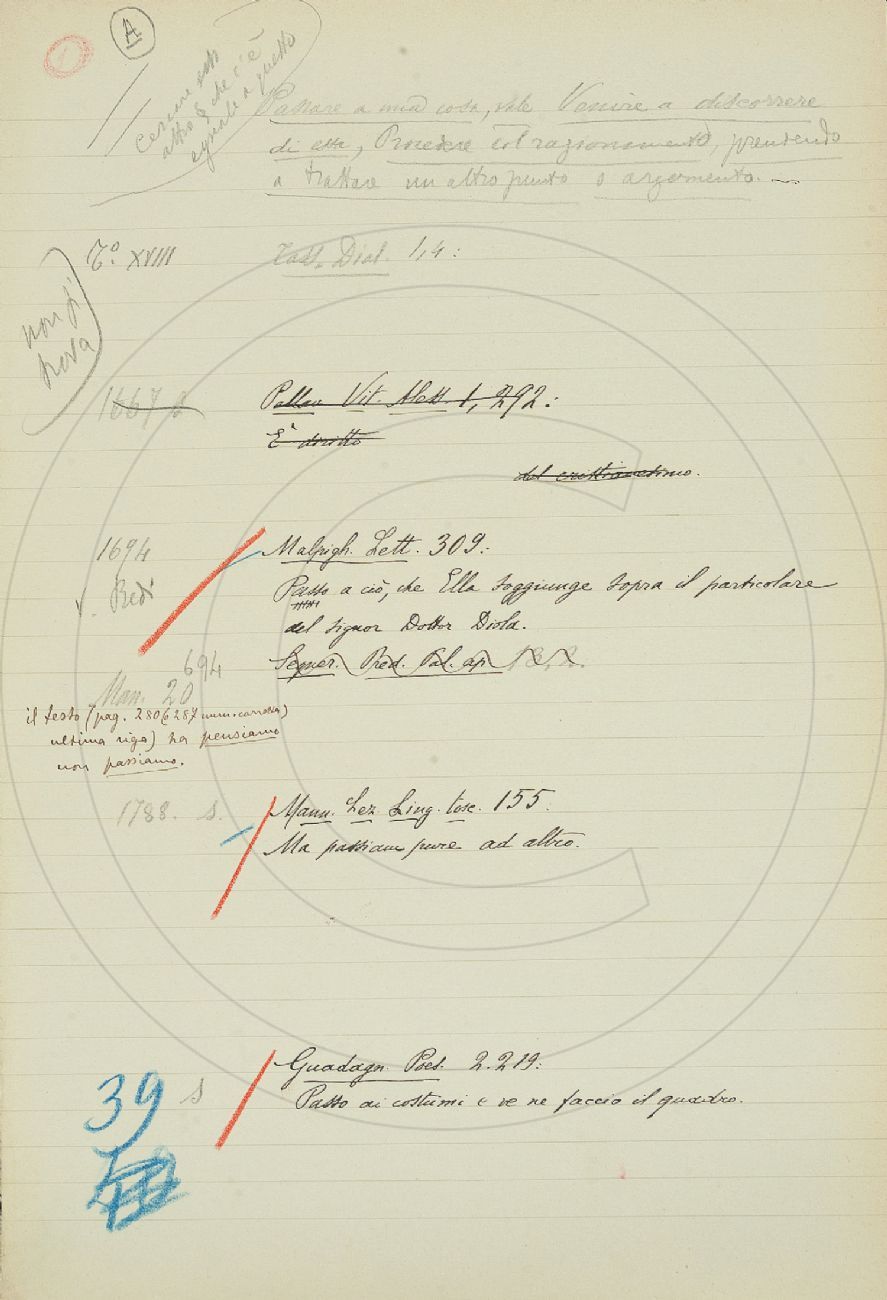 1
A
altro § che c'è
eguale a questo
Passare a una cosa, vale Venire a discorrere
di essa, Procedere col ragionamento, prendendo
a trattare un altro punto o argomento.
T.º XVIII
Tass. Dial. 1,4:
non si
trova
1667 s
Pallav. Vit. Aless. 1, 292:
È diritto
del cristianesimo.
1694
Malpigh. Lett. 309:
v. Redi
Passo a ciò, che Ella soggiunge sopra il particolare
del signor Dottor Diola.
694
Segner. Pred. Pal. ap. 13, 2.
Man. 20
il testo (pag. 280 (287 num. corretta)
ultima riga) ha pensiamo
non passiamo.
1788. s.
Mann. Lez. Ling. tosc. 155:
Ma passiam pure ad altro.
39
s
Guadagn. Poes. 2.219:
Passo ai costumi e ve ne faccio il quadro.